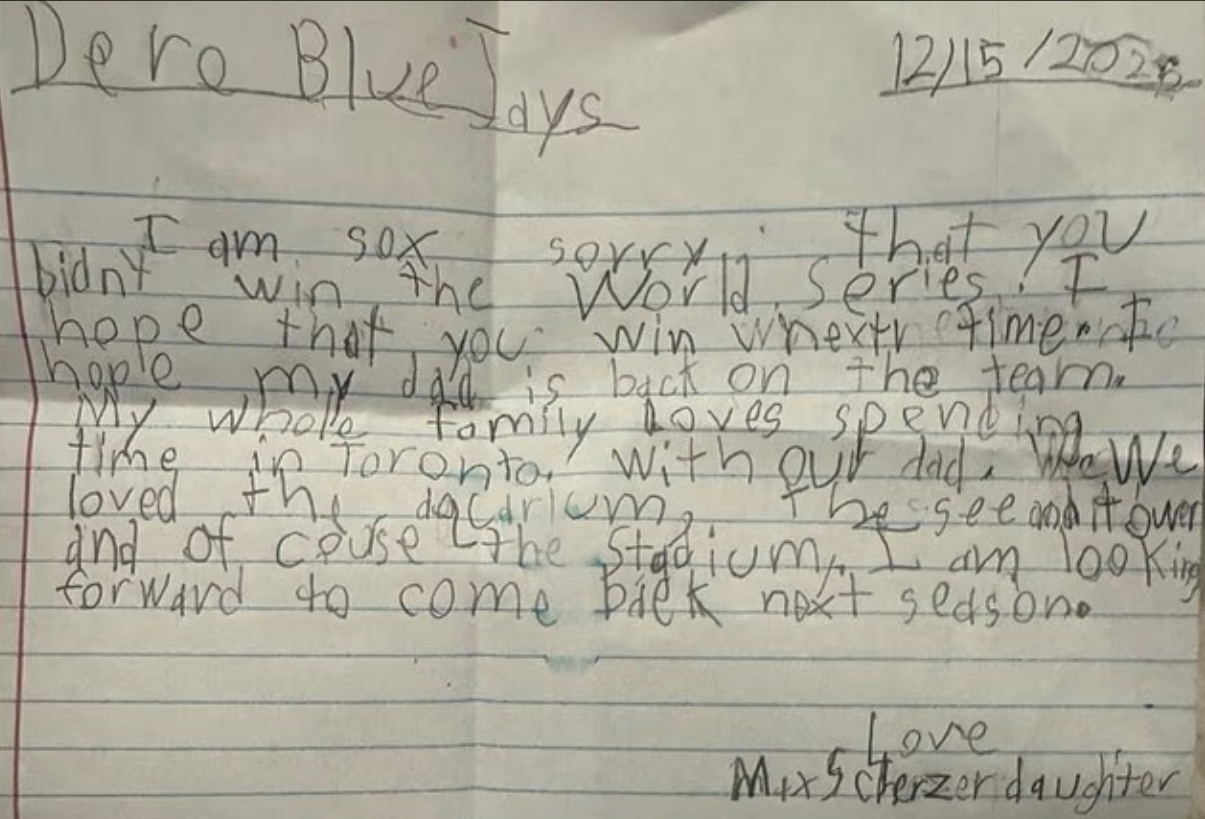 Dero Blue Jays
12/15/2025
I am sox sorry that you
bidnt win the World series. I
hope that you win whextr time. I
hople my dad is back on the team.
My whole family loves spending
time in Toronto, with our dad. We We
loved the aqcarium, the see and it ower
and of couse the stadium. I am looking
forward to come back next season.
Love
Max Scherzer daughter